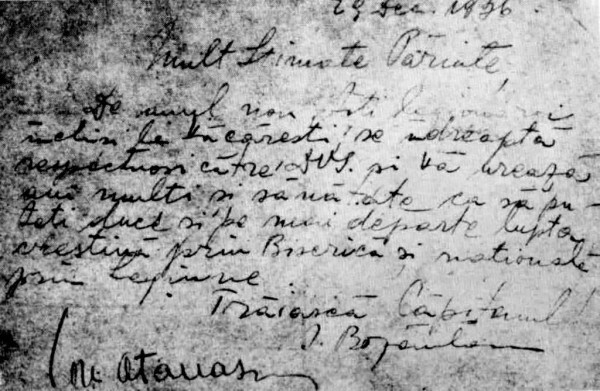 29 Dec. 1936.
Mult Stimate Părinte,
De anul nou foști legionari
închiși la Văcărești, se îndreaptă
respectuoși către DVS. și Vă urează
ani mulți și sănătate ca să pu-
teți duce și pe mai departe lupta
creștină prin Biserică și națională
prin Legiune.
Trăiască Căpitanul!
I.